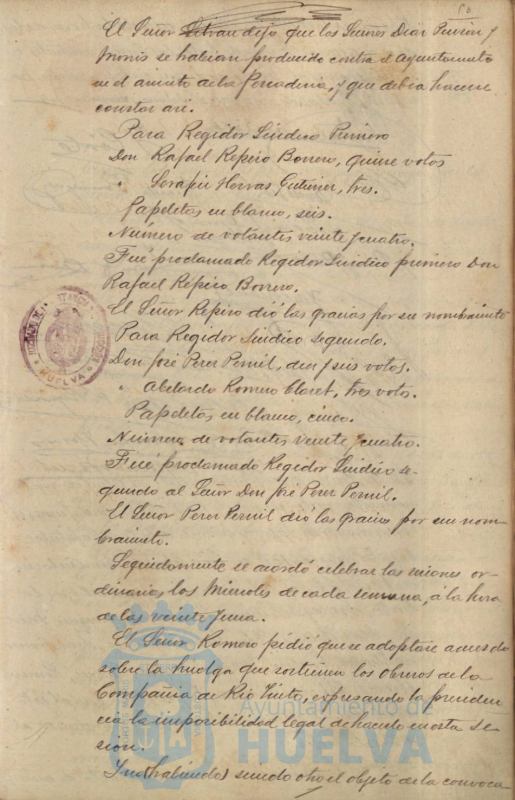 El Señor Litran dijo que los Señores Diaz Quirión y
Monis se habian producido contra el ayuntamiento
en el asunto de la Pescaderia, y que debia hacerse
constar asi.
Para Regidor Sindico Primero
Don Rafael Repiso Borrero, quince votos
" Serafin Hervas Gutierrez, tres.
Papeletas en blanco, seis.
Número de votantes veinte y cuatro.
Fué proclamado Regidor Sindico primero Don
Rafael Repiso Borrero.
El Señor Repiso dió las gracias por su nombramiento
Para Regidor Sindico segundo.
Don José Perez Pernil, diez y seis votos.
" Abelardo Romero Claret, tres votos.
Papeletas en blanco, cinco.
Número de votantes veinte y cuatro.
Fué proclamado Regidor Sindico se-
gundo al Señor Don José Perez Pernil.
El Señor Perez Pernil dió las gracias por su nom-
bramiento.
Seguidamente se acordó celebrar las sesiones or-
dinarias los Miercoles de cada semana, á la hora
de las veinte y una.
El Señor Romero pidió que se adoptase acuerdo
sobre la huelga que sostienen los obreros de la
Compañia de Rio Tinto, expresando la presiden
cia la imposibilidad legal de hacerlo en esta se-
sion.
Y no habiendo sido otro el objeto de la convoca-
HUELVA
Ayuntamiento de
HUELVA